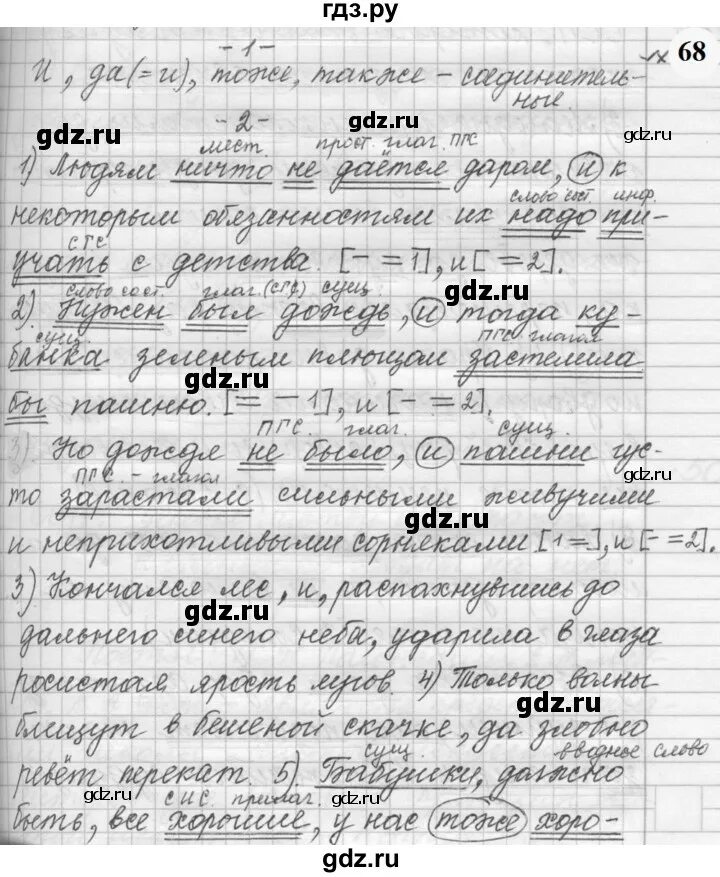 гдз.ру
68
- 1 -
И, да(=и), тоже, также – соединитель-
ные.
gdz.ru gdz.ru gdz.ru
- 2 -
мест прост. глаг. ПГС
1) Людям ничто не даётся даром, и к
слово сост. инф.
некоторым обязанностям их надо при-
СГС
учать с детства. [– = 1], и [ = 2].
gdz.ru
слово сост. глаг. (СГС) сущ
2). Нужен был дождь, и тогда ку-
сущ. ПГС глагол
банка зеленым плющом застелила
gdz.ru gdz.ru
бы пашню. [= – 1], и [– = 2].
ПГС. глаг. сущ.
3). Но дождя не было, и пашни гус-
gdz.ru gdz.ru
ПГС. – глагол
то зарастали сильными живучими
gdz.ru
и неприхотливыми сорняками [1 =], и [– = 2].
3) Кончался лес, и, распахнувшись до
gdz.ru
дальнего синего неба, ударила в глаза
росистая ярость лугов. 4) Только волны
gdz.ru gdz.ru
блещут в бешеной скачке, да злобно
сущ. вводное слово
ревёт перекат. 5) Бабушки, должно
gdz.ru gdz.ru
СИС. прилаг.
быть, все хорошие, у нас тоже хоро-
gdz.ru